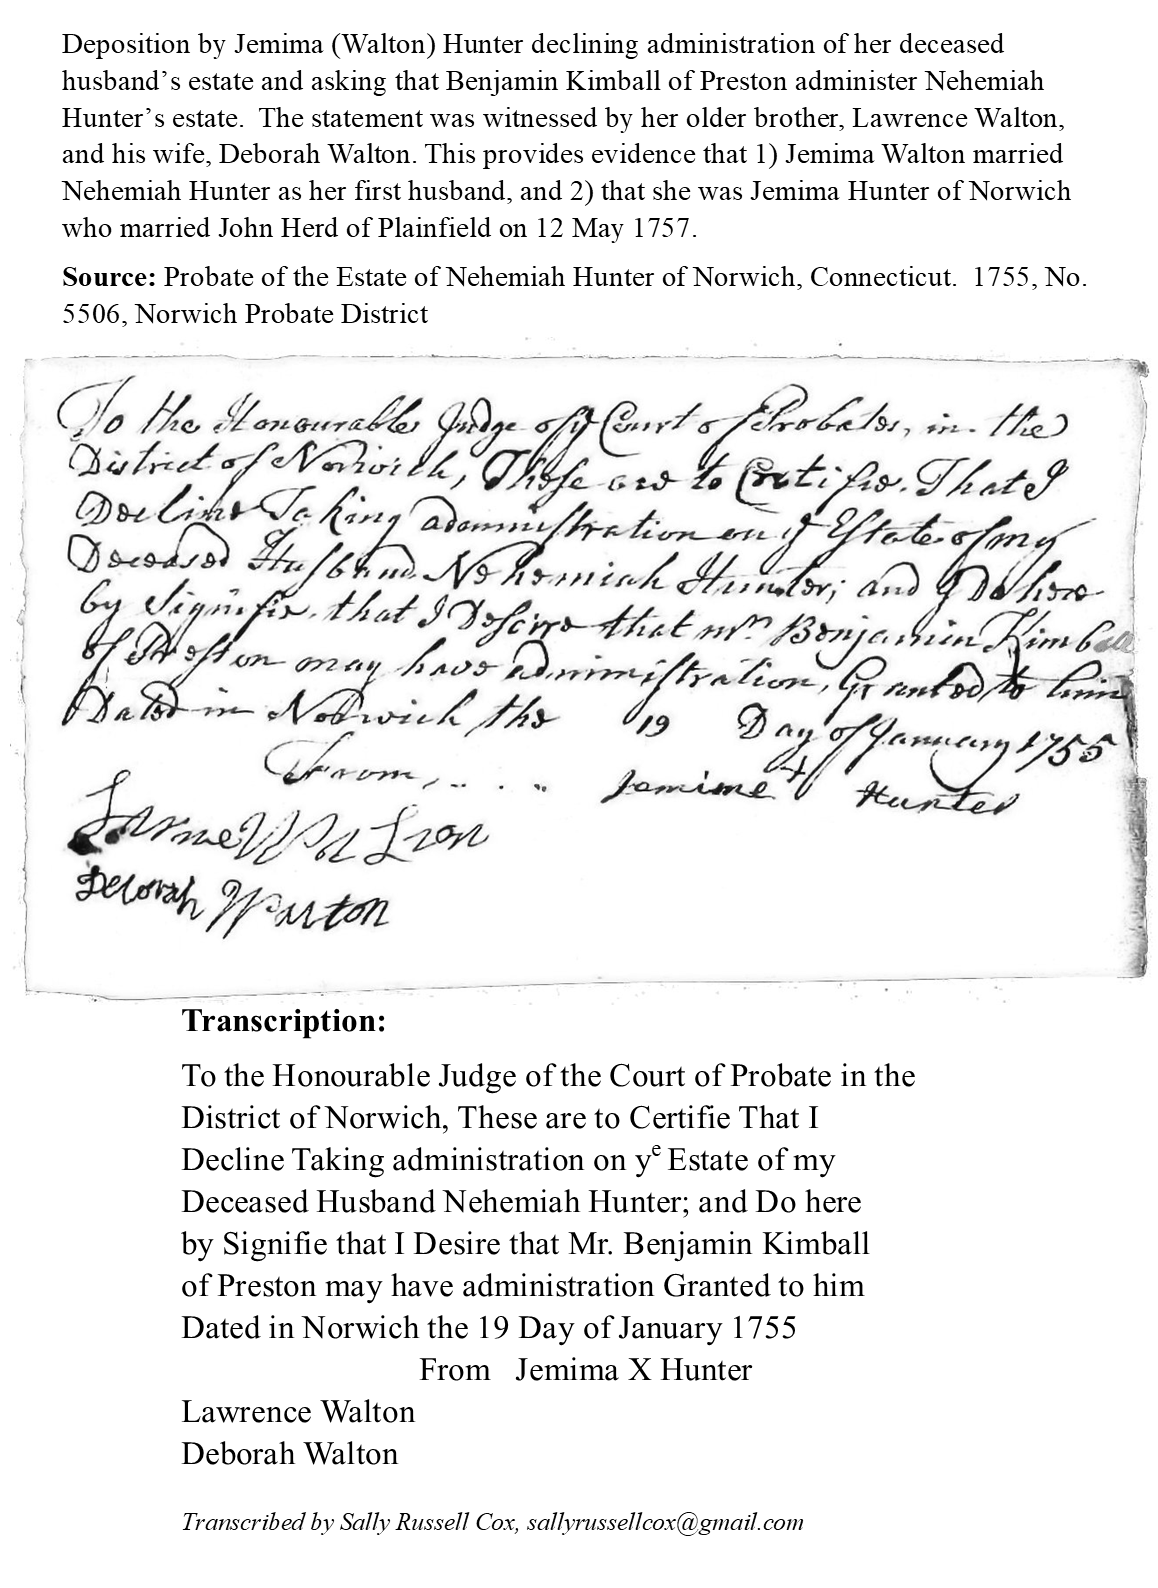 Deposition by Jemima (Walton) Hunter declining administration of her deceased
husband’s estate and asking that Benjamin Kimball of Preston administer Nehemiah
Hunter’s estate.  The statement was witnessed by her older brother, Lawrence Walton,
and his wife, Deborah Walton. This provides evidence that 1) Jemima Walton married
Nehemiah Hunter as her first husband, and 2) that she was Jemima Hunter of Norwich
who married John Herd of Plainfield on 12 May 1757.
Source: Probate of the Estate of Nehemiah Hunter of Norwich, Connecticut.  1755, No.
5506, Norwich Probate District
To the Honourable Judge of ye Court of Probates, in the
District of Norwich, These are to Certifie. That I
Decline Taking administration on ye Estate of my
Deceased Husband Nehemiah Hunter; and I Do here
by Signifie that I Desire that mr. Benjamin Kimball
of Preston may have administration, Granted to him
Dated in Norwich the 19 Day of January 1755
From, Jemime + Hunter
Walton
Deborah Walton
Transcription:
To the Honourable Judge of the Court of Probate in the
District of Norwich, These are to Certifie That I
Decline Taking administration on ye Estate of my
Deceased Husband Nehemiah Hunter; and Do here
by Signifie that I Desire that Mr. Benjamin Kimball
of Preston may have administration Granted to him
Dated in Norwich the 19 Day of January 1755
From   Jemima X Hunter
Lawrence Walton
Deborah Walton
Transcribed by Sally Russell Cox, sallyrussellcox@gmail.com